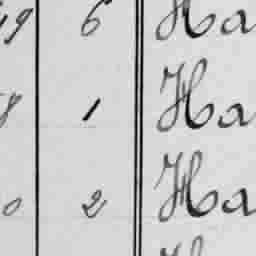 49 6 Ha
8 1 Ha
0 2 Ha